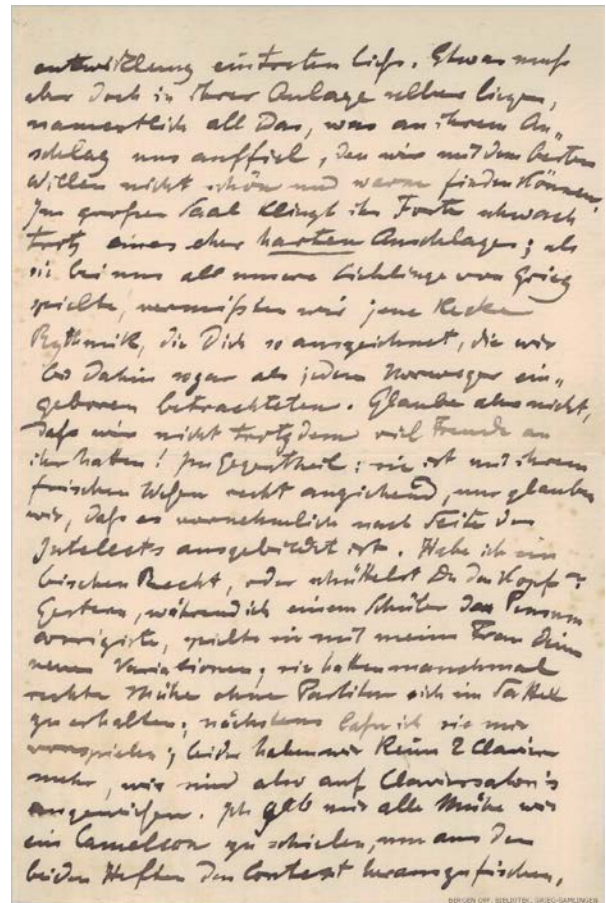 entwicklung eintreten liess. Etwas muss
aber doch in ihrer Anlage selber liegen,
namentlich all Das, was an ihrem An„
schlag uns auffiel, den wir mit dem besten
Willen nicht schön und warm finden können.
Im grossen Saal klingt ihr Forte schwach
trotz eines eher harten Anschlages; als
sie bei uns all unsere Lieblinge von Grieg
spielte, vermissten wir jene kecke
Rythmik, die Dich so auszeichnet, die wir
bis dahin sogar als jedem Norweger ein„
geboren betrachteten. Glaube aber nicht,
dass wir nicht trotzdem viel Freude an
ihr hatten! Im Gegentheil; sie ist mit ihrem
frischen Wesen recht anziehend, nur glauben
wir, dass es vornehmlich nach Seite des
Intelects ausgebildet ist. Habe ich ein
bischen Recht, oder schüttelst Du den Kopf?
Gestern, während ich einem Schüler das Pensum
corrigirte, spielte sie mit meiner Frau Deine
neuen Variationen; sie hatten manchmal
rechte Mühe ohne Partitur sich im Sattel
zu erhalten; nächstens lasse ich sie mir
vorspielen; leider haben wir keine 2 Claviere
mehr, wir sind also auf Claviersalon's
angewiesen. Ich gab mir alle Mühe wie
ein Cameleon zu schielen, um aus den
beiden Heften den Context herauszufischen,
BERGEN OFF. BIBLIOTEK, GRIEG-SAMLINGEN